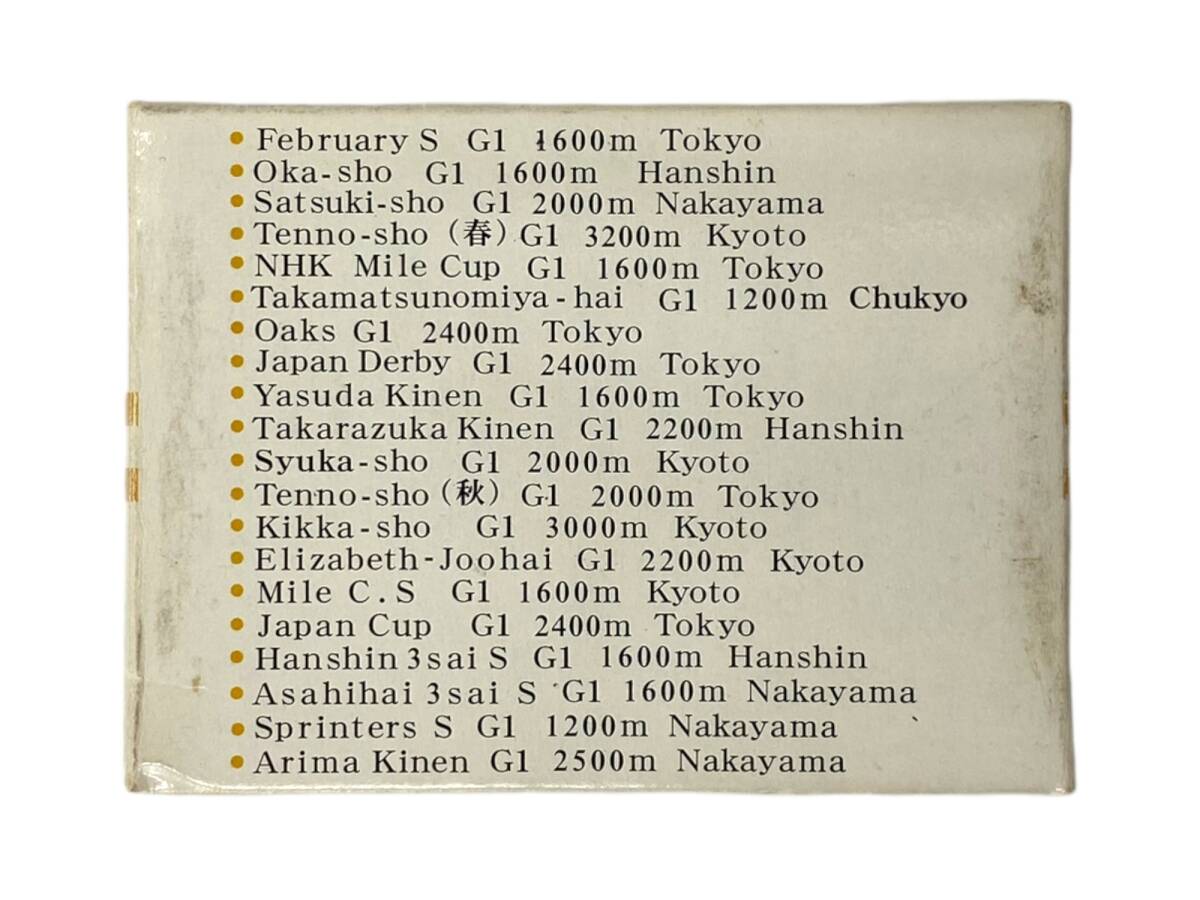 • February S G1 1600m Tokyo
• Oka-sho G1 1600m Hanshin
• Satsuki-sho G1 2000m Nakayama
• Tenno-sho (春) G1 3200m Kyoto
• NHK Mile Cup G1 1600m Tokyo
• Takamatsunomiya-hai G1 1200m Chukyo
• Oaks G1 2400m Tokyo
• Japan Derby G1 2400m Tokyo
• Yasuda Kinen G1 1600m Tokyo
• Takarazuka Kinen G1 2200m Hanshin
• Syuka-sho G1 2000m Kyoto
• Tenno-sho (秋) G1 2000m Tokyo
• Kikka-sho G1 3000m Kyoto
• Elizabeth-Joohai G1 2200m Kyoto
• Mile C.S G1 1600m Kyoto
• Japan Cup G1 2400m Tokyo
• Hanshin 3sai S G1 1600m Hanshin
• Asahihai 3sai S G1 1600m Nakayama
• Sprinters S G1 1200m Nakayama
• Arima Kinen G1 2500m Nakayama